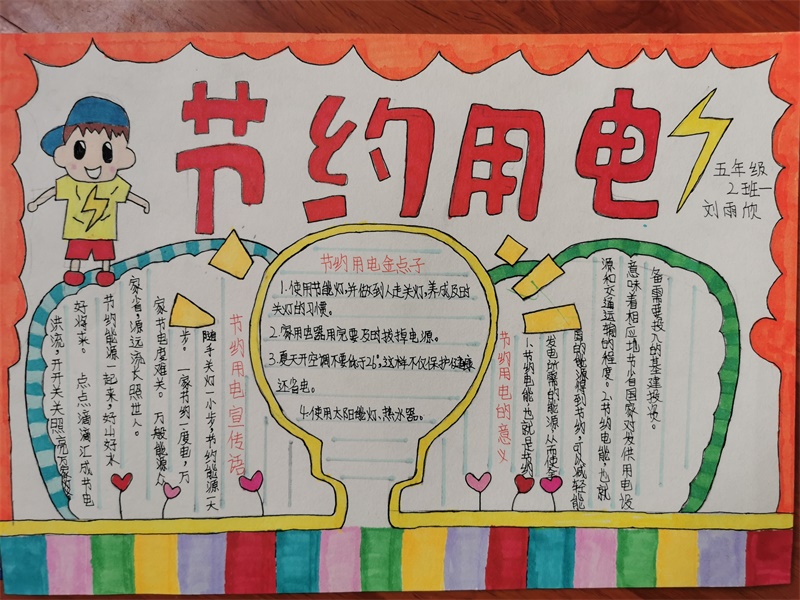 节约用电
五年级
2班一
刘雨欣
节约用电宣传语
随手关灯一小步,节约能源一大
步。一家节约一度电,万
家节电度难关。万般能源众
家省,源远流长照世人。
节约能源一起来,好山好水
好将来。点点滴滴汇成节电
洪流,开开关关照亮万家
节约用电金点子
1.使用节能灯,并做到人走关灯,养成及时
关灯的习惯。
2.家用电器用完要及时拔掉电源。
3.夏天开空调不要低于26°,这样不仅保护健康
还省电。
4.使用太阳能灯、热水器。
节约用电的意义
1.节约电能,也就是节约
发电所需的能源,从而使全
国的能源得到节约,可以减轻能
源和交通运输的程度。2.节约电能,也就
意味着相应地节省国家对发供用电设
备需要投入的基建投资。